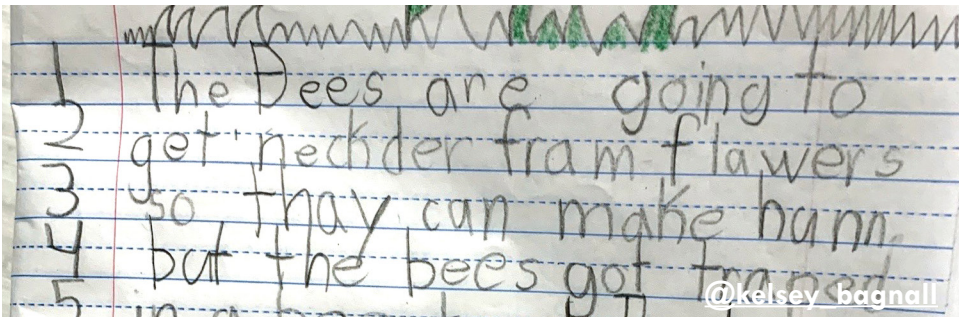 1 The Bees are going to
2 get neckder fram flawers
3 so thay can make hunn
4 but the bees got traped
5 in a
@kelsey_bagnall